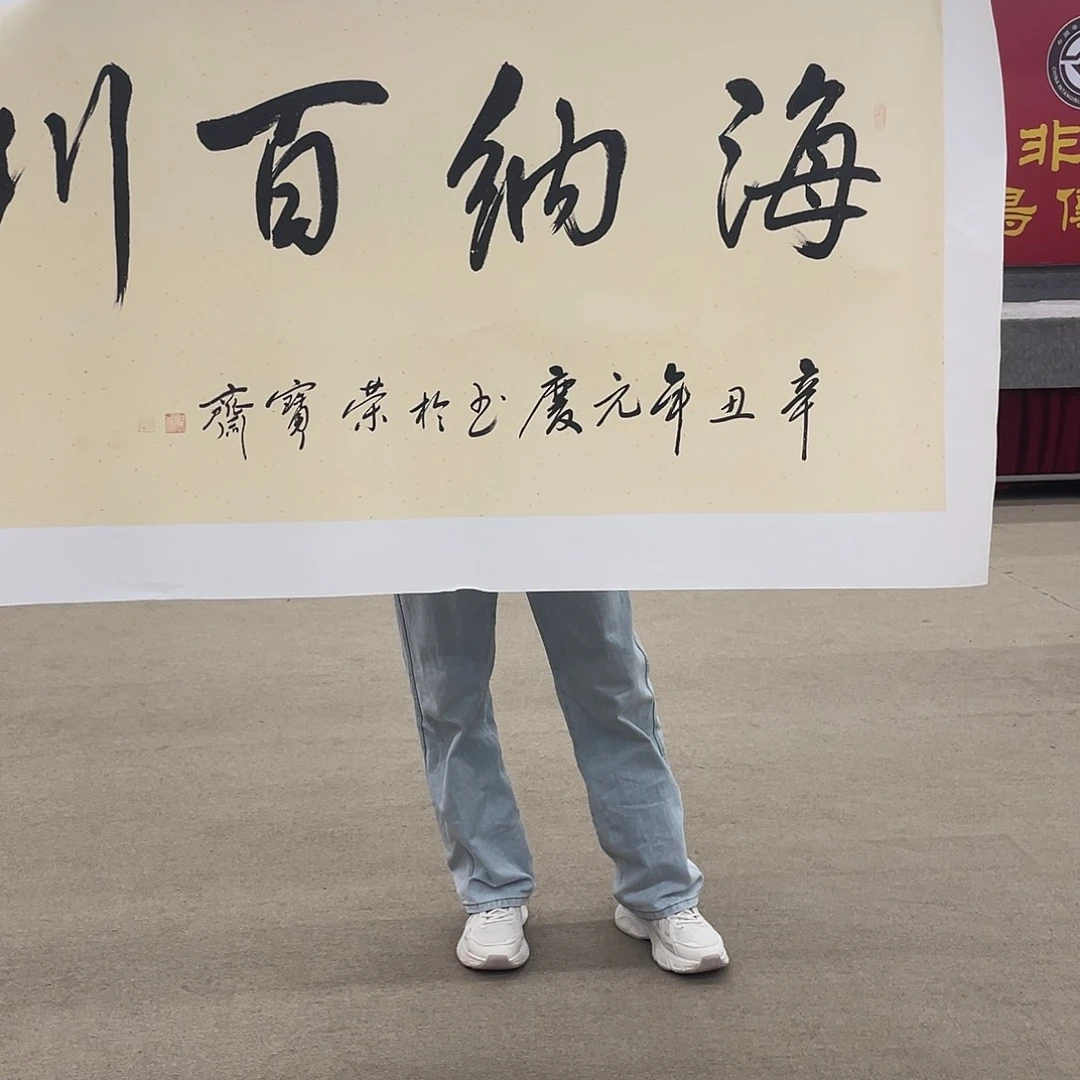 海納百川
辛丑年元慶书於榮寶齋
非
傳